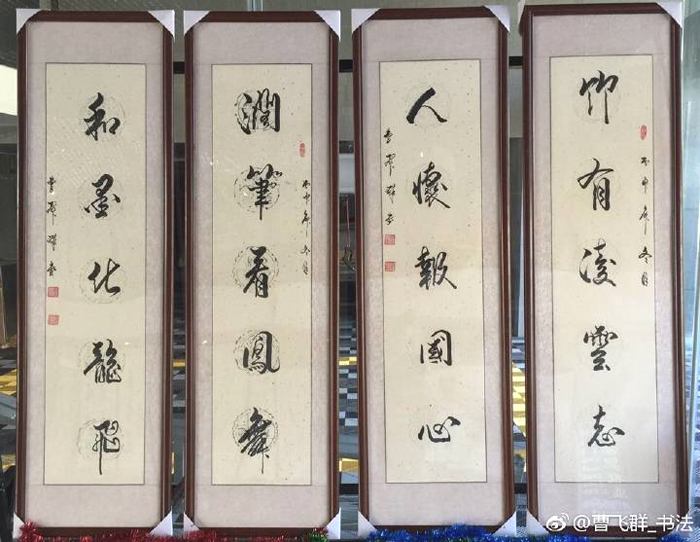 竹有凌雲志
丙申年冬月
人懷報國心
潤筆看鳳舞
丙申年冬月
和墨化龍飛
@曹飞群_书法